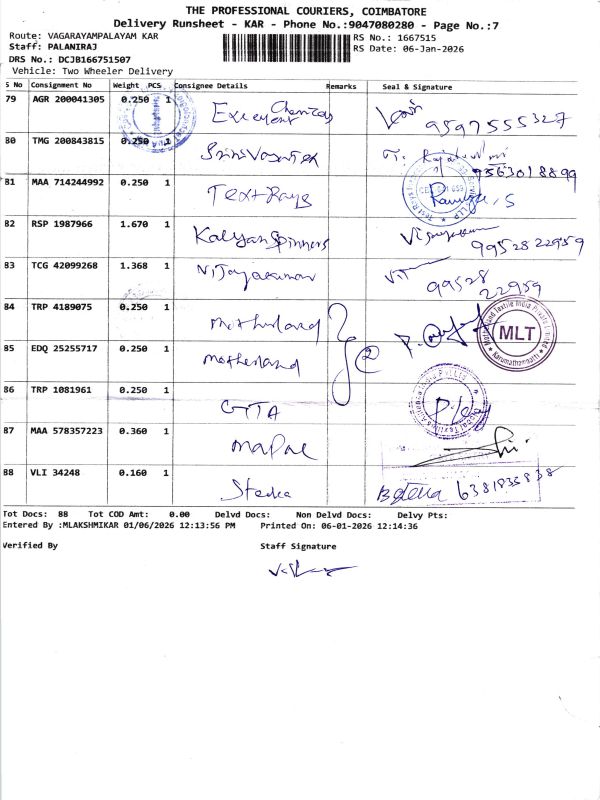 THE PROFESSIONAL COURIERS, COIMBATORE
Delivery Runsheet - KAR - Phone No.:9047080280 - Page No.:7
Route: VAGARAYAMPALAYAM KAR
RS No.: 1667515
Staff: PALANIRAJ
RS Date: 06-Jan-2026
DRS No.: DCJB166751507
Vehicle: Two Wheeler Delivery
S No Consignment No Weight PCS Consignee Details Remarks Seal & Signature
79 AGR 200041305 0.250 1 Chemicals 9597555327
80 TMG 200843815 0.250 1 9563018899
81 MAA 714244992 0.250 1 Text Rays
82 RSP 1987966 1.670 1 Kalyan Spinners 9952822959
83 TCG 42099268 1.368 1 Vijayakumar 99528 22959
84 TRP 4189075 0.250 1 Motherland MLT
85 EDQ 25255717 0.250 1 Motherland 2
86 TRP 1081961 0.250 1 GTA
87 MAA 578357223 0.360 1
88 VLI 34248 0.160 1 6381935838
Tot Docs: 88 Tot COD Amt: 0.00 Delvd Docs: Non Delvd Docs: Delvy Pts:
Entered By :MLAKSHMIKAR 01/06/2026 12:13:56 PM Printed On: 06-01-2026 12:14:36
Verified By Staff Signature